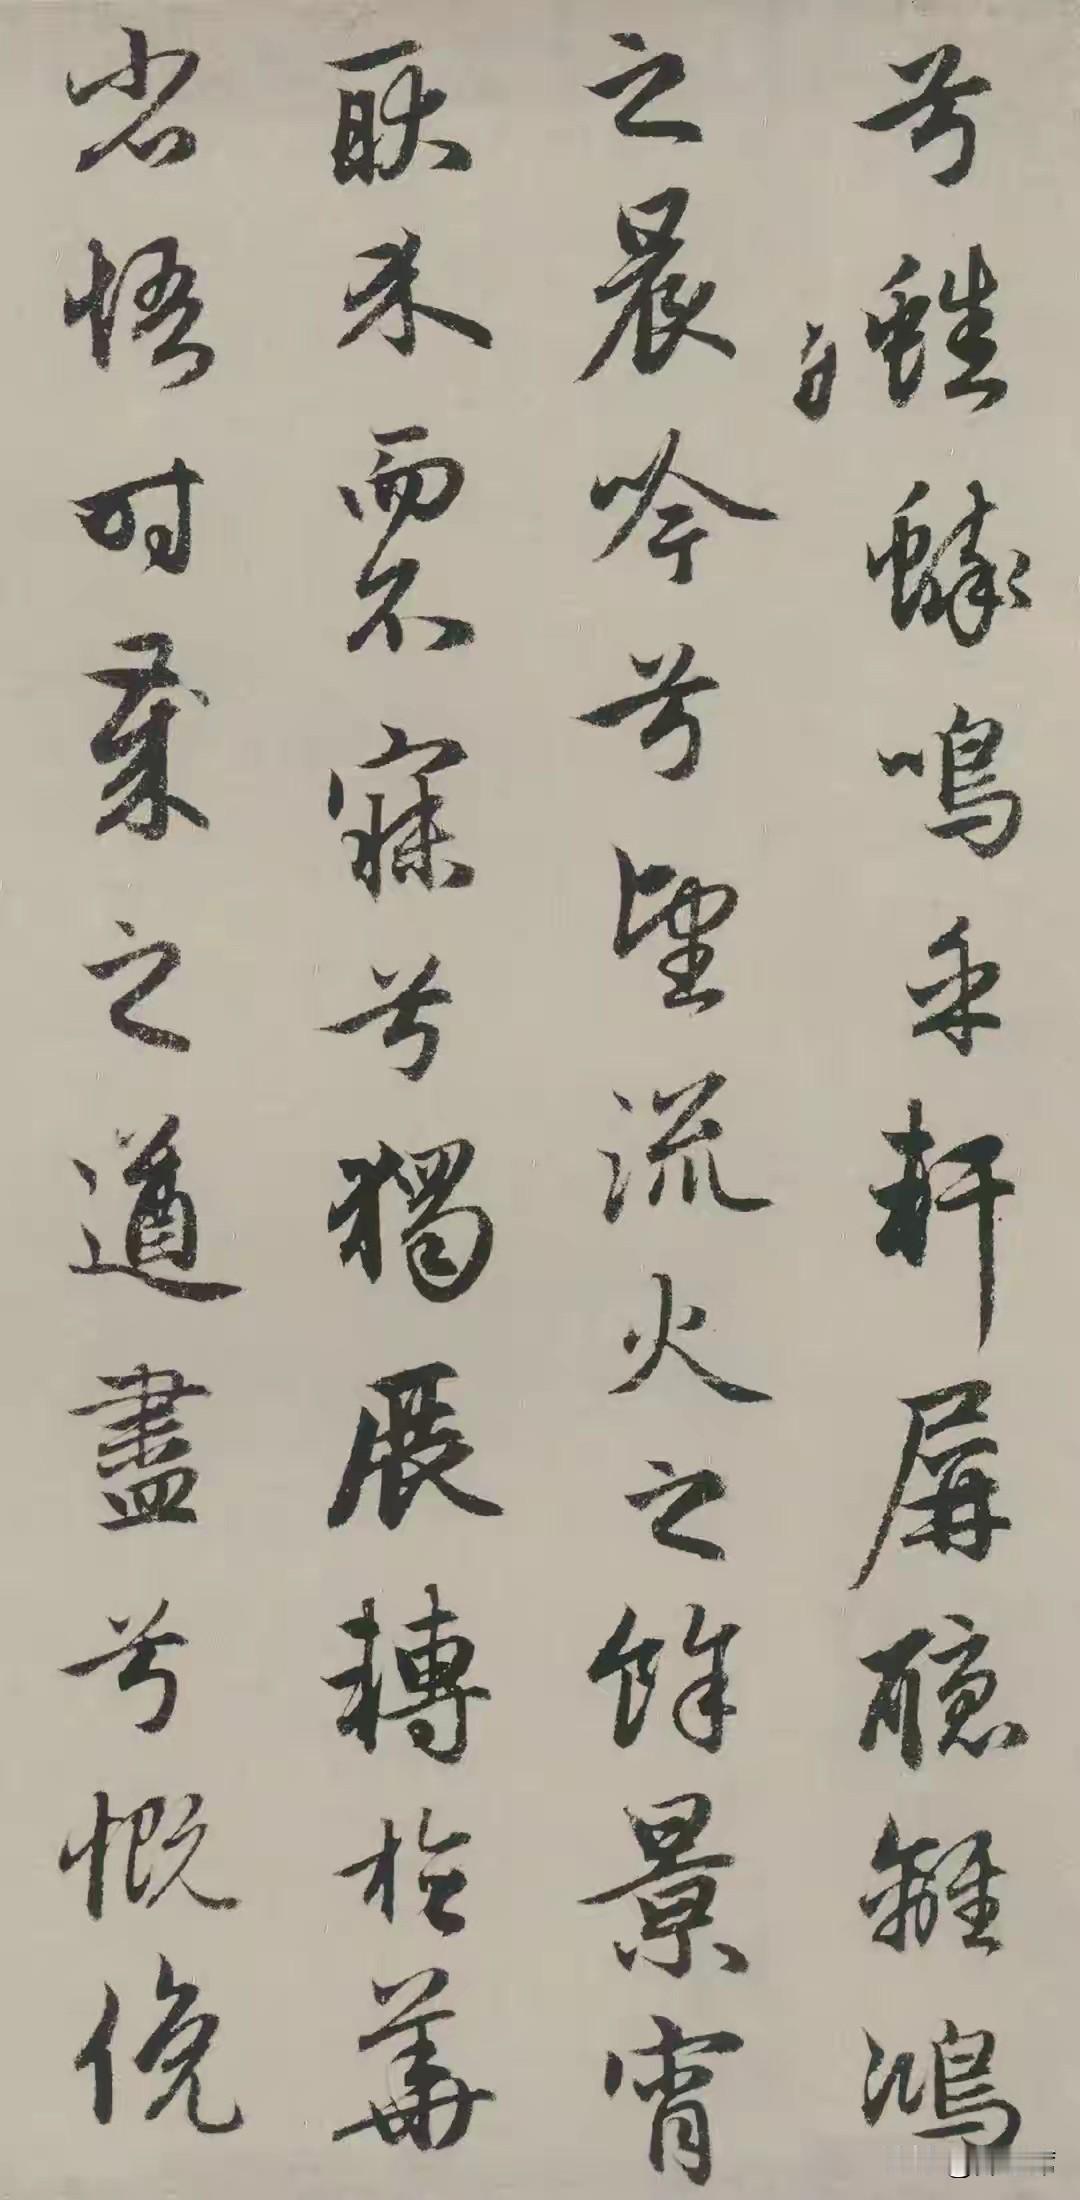 兮蟋蟀鳴乎軒屏聽離鴻
之晨吟兮望流火之餘景宵
耿介而不寐兮獨展轉於華
省悟時歲之遒盡兮慨俛